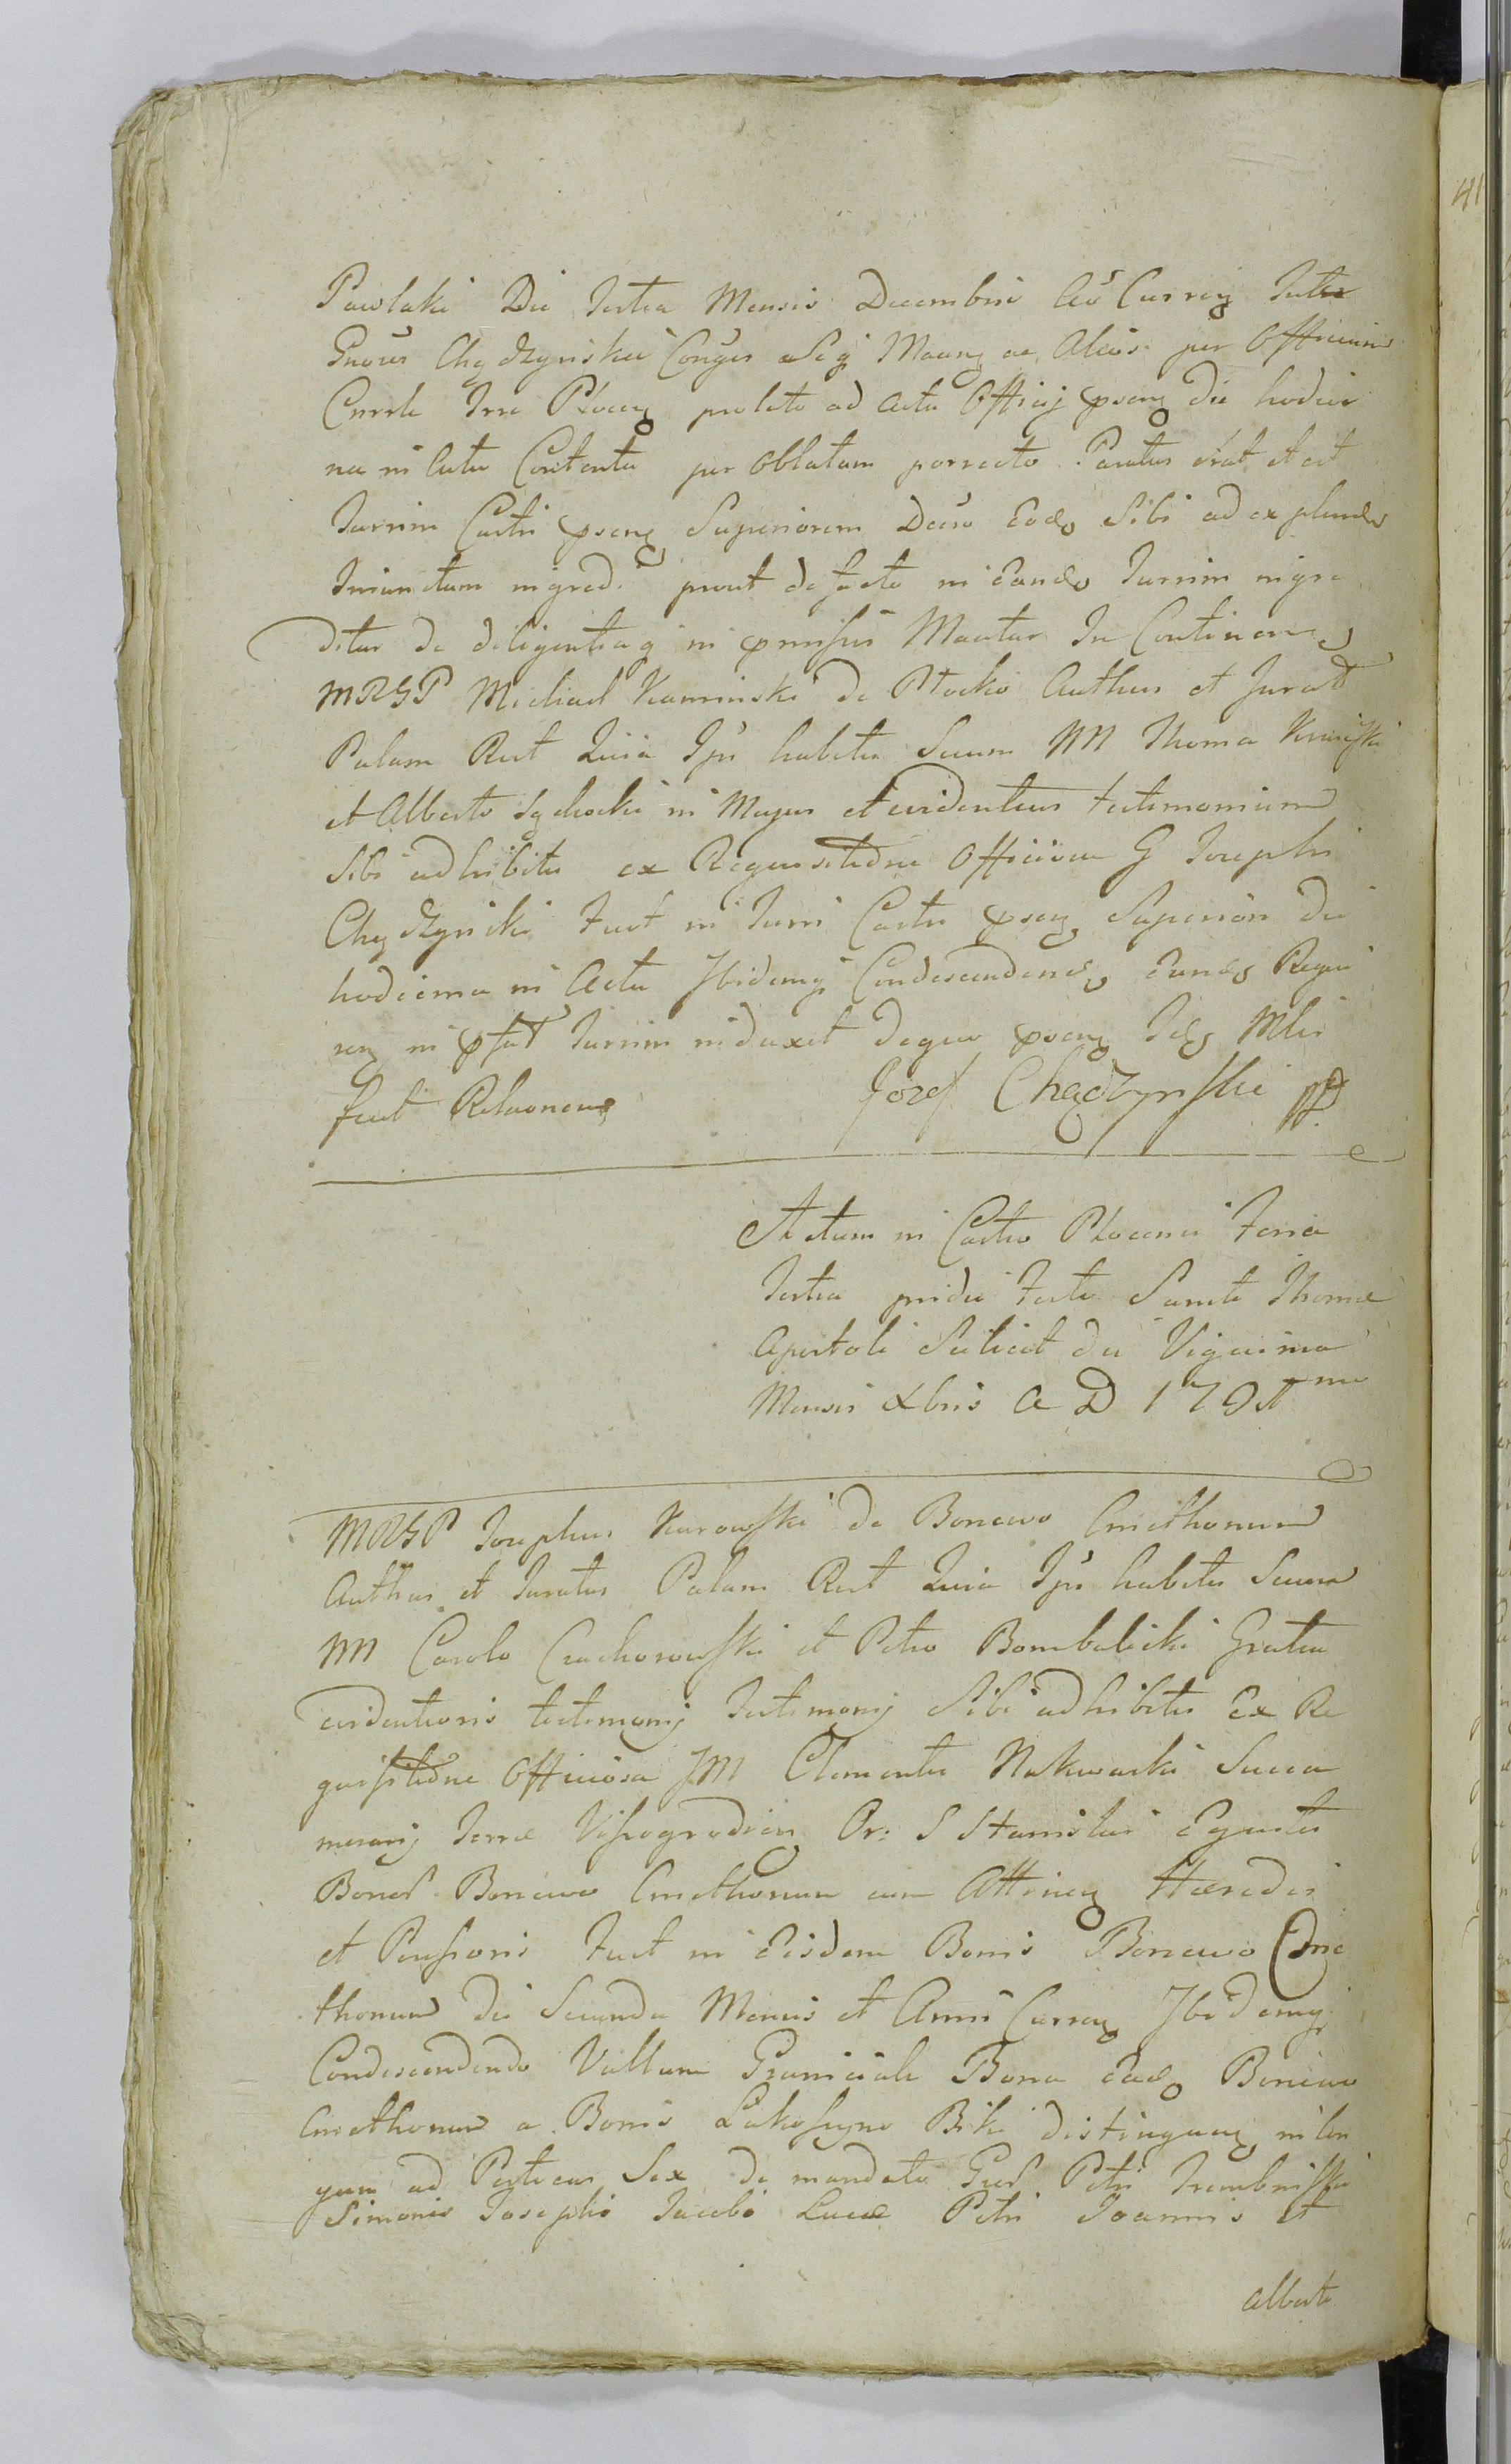 Pawlaki Die tertia Mensis Decembris Aō Curren Inter
Gnōsos Chądzyńskie Conjges Seq Maan ac Alios per Officium
Cnrrle Trre Plocen prolato ad acta Officij psen die hodier
na in Actu Contentu per Oblatam porrecto Paratus erat et est
Turrim Castri psen Superiorem Decreto Eodō Sibi ad explendō
Iniunctum ingredi prout de facto in Eandō Turrim ingre
ditur de diligentiaq in pmissis Maātur In Continen
MRGP Michael Kaminski de Płocko Authus et Jurat
Palam Rect Quia Ips habitis Secum NN Thoma
et Alberto Sychocki in Majus et evidentius testimonium
Sibi adhibitis ex Requisitōne Officiosa G Josephi
Chądzyński Fuit in Turri Castri psen Superiori Die
hodierna in Actu Ibidemq Condescendendō Eundō Requi
ren in pfat Turrim induxit de quo psen Idō Mlis
fecit Relaonem Jozef Chądzyńskie
Actum in Castro Plocensi Feria
Tertia pridie Festi Sancti Thomæ
Apostoli Scilicet die Vigesima
Mensis Xbris A D 179
MRGP Josephus Kurowski de Boncwo Cmethonum
Authus et Juratus Palam Rect Quia Ips habitis Secum
NN Carolo Czachorowski et Petro Bombalicki Gratia
evidentioris testimonij Testimonij Sibi adhibitis Ex Re
quisitōne Officiosa JM Clementis Nakwaski Succa
merarij Terræ Vissogrodien Or: S Stanislai Equitis
Bonor Boncwo Cmethonum cum Attinen Hæredis
et Possessoris Fuit in Eisdem Bonis Boncwo Cme
thonum die Secunda Mensis et Anni Curren Ibidemq
Condescendendo Vallum Graniciale Bona Eadō Boncwo
Cmethonum a Bonis Łukoszyno Biki distinguen in lon
gum ad Perticas Sex de mandato Gnor Petri Trembiński
Simonis Josephi Jacobi Lucæ Petri Joannis et
Alberti